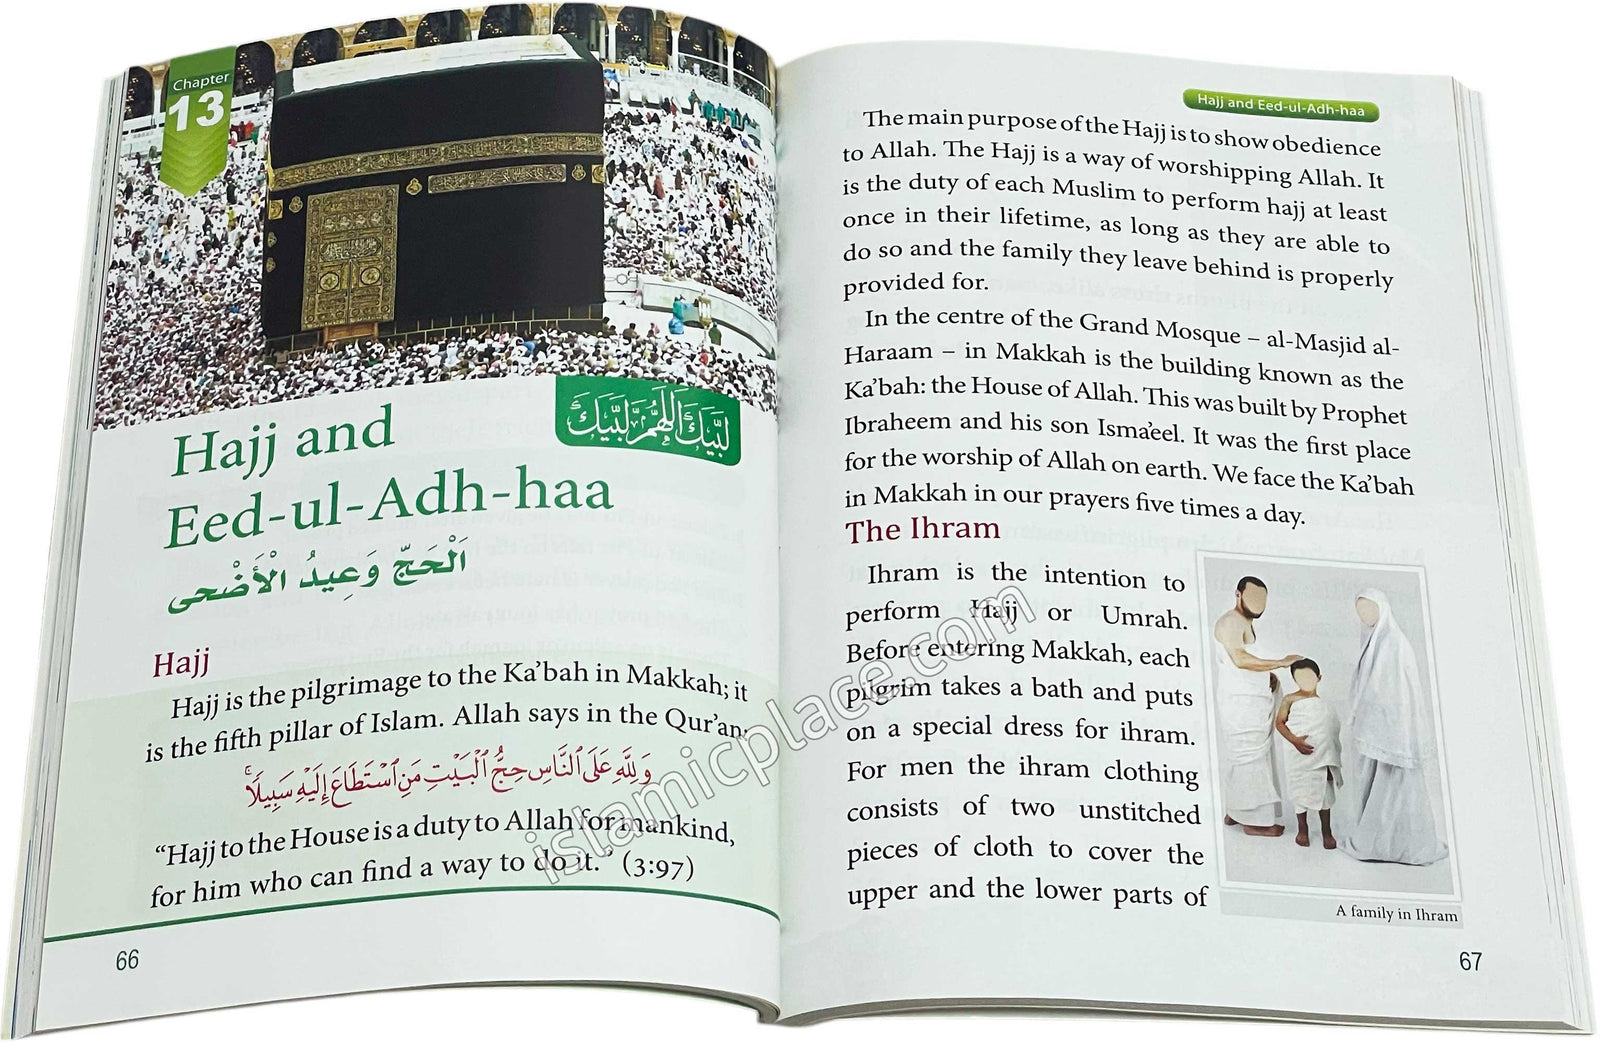 Chapter
13
لَبَّيْكَ اللَّهُمَّ لَبَّيْكَ
Hajj and
Eed-ul-Adh-haa
اَلْحَجّ وَعِيدُ الْأَضْحى
Hajj
Hajj is the pilgrimage to the Ka’bah in Makkah; it
is the fifth pillar of Islam. Allah says in the Qur’an,
وَلِلَّهِ عَلَى ٱلنَّاسِ حِجُّ ٱلْبَيْتِ مَنِ ٱسْتَطَاعَ إِلَيْهِ سَبِيلًاۚ
“Hajj to the House is a duty to Allah for mankind,
for him who can find a way to do it.” (3:97)
66
Hajj and Eed-ul-Adh-haa
The main purpose of the Hajj is to show obedience
to Allah. The Hajj is a way of worshipping Allah. It
is the duty of each Muslim to perform hajj at least
once in their lifetime, as long as they are able to
do so and the family they leave behind is properly
provided for.
In the centre of the Grand Mosque – al-Masjid al-
Haraam – in Makkah is the building known as the
Ka’bah: the House of Allah. This was built by Prophet
Ibraheem and his son Isma’eel. It was the first place
for the worship of Allah on earth. We face the Ka’bah
in Makkah in our prayers five times a day.
The Ihram
Ihram is the intention to
perform Hajj or Umrah.
Before entering Makkah, each
pilgrim takes a bath and puts
on a special dress for ihram.
For men the ihram clothing
consists of two unstitched
pieces of cloth to cover the
upper and the lower parts of
A family in Ihram
67
islamicplace.com